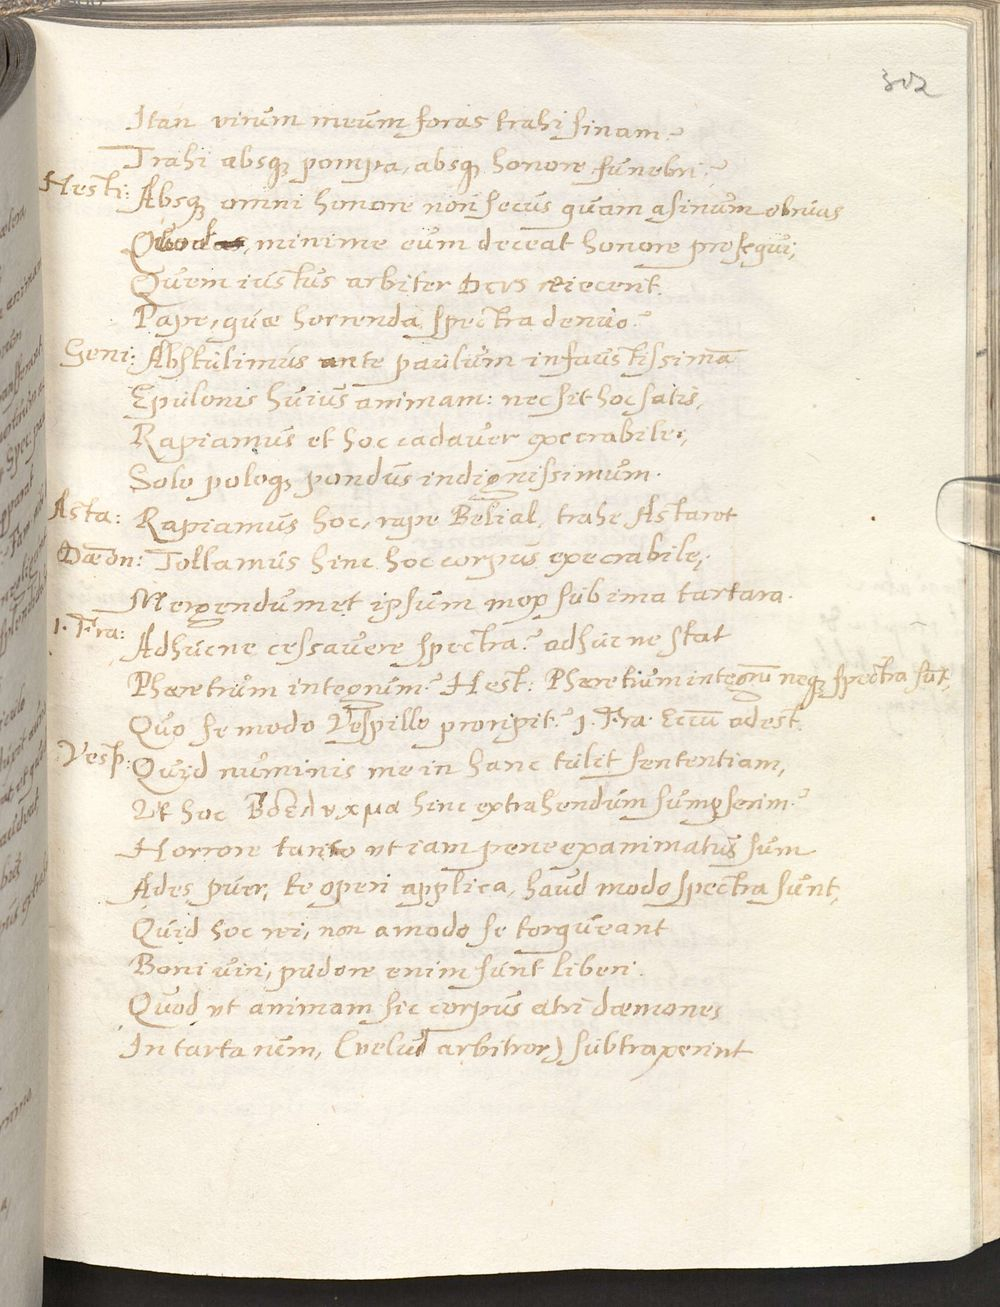 302
Itan virum meum foras trahi sinam?
Trahi absq; pompa, absq; honore funebri?
Hesti: Absq; omni honore non secus quam asinum obruas
Quod minime eum deceat honore prosequi,
Quem iustus arbiter Deus reiecerit.
Papę, quæ horrenda spectra denuo?
Geni: Abstulimus ante paulum infaustissimā
Epulonis huius animam: nec sit hoc satis,
Rapiamus et hoc cadaver execrabile,
Solo poloq; pondus indignissimum.
Asta: Rapiamus hoc, rape Belial, trahe Astarot
Dæon: Tollamus hinc hoc corpus execrabile,
Mergendum et ipsum mox sub ima tartara.
1. Fra: Adhucne cessavere spectra? adhucne stat
Phæretrum integrum? Hest: Phæretrum integrū neq; spectra sūt,
Quo se modo Vespillo proripit? 1. Fra. Eccū adest.
Vesp: Quid numinis me in hanc tulit sententiam,
Ut hoc hinc extrahendum sumpserim?
Horrore tanto ut iam pene exanimatus sum
Ades puer, te operi applica, haud modo spectra sunt,
Quid hoc rei, non a modo se torqueant
Boni viri, pudore enim sunt liberi.
Quod ut animam sic corpus atri dæmones
In tartarum, (velut arbitror) subtraxerint